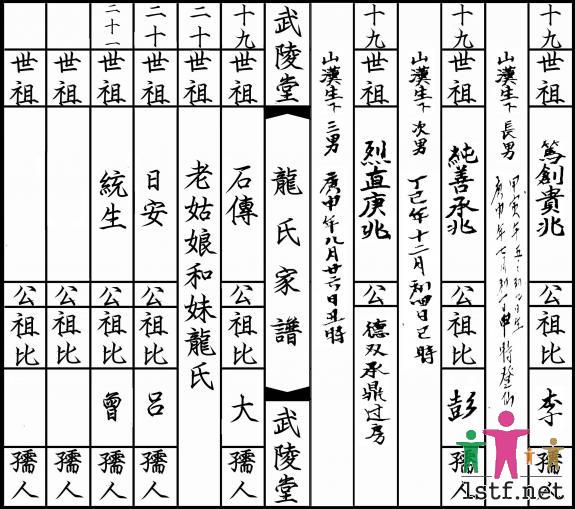 十九世祖 篤創貴兆 公祖比 李 孺人
山漢生下 長男
十九世祖 純善承兆 公祖比 彭 孺人
山漢生下 次男 丁己年十二月初四日己時
十九世祖 烈直庚兆 公 德双承鼎过房
山漢生下 三男 庚申年八月廿六日丑時
武陵堂 龍氏家譜 武陵堂
十九世祖 石傳 公祖比 大 孺人
二十世祖 老姑娘和妹龍氏
二十世祖 日安 公祖比 呂 孺人
二十一世祖 統生 公祖比 曾 孺人
世祖 公祖比 孺人
世祖 公祖比 孺人
1stf.net